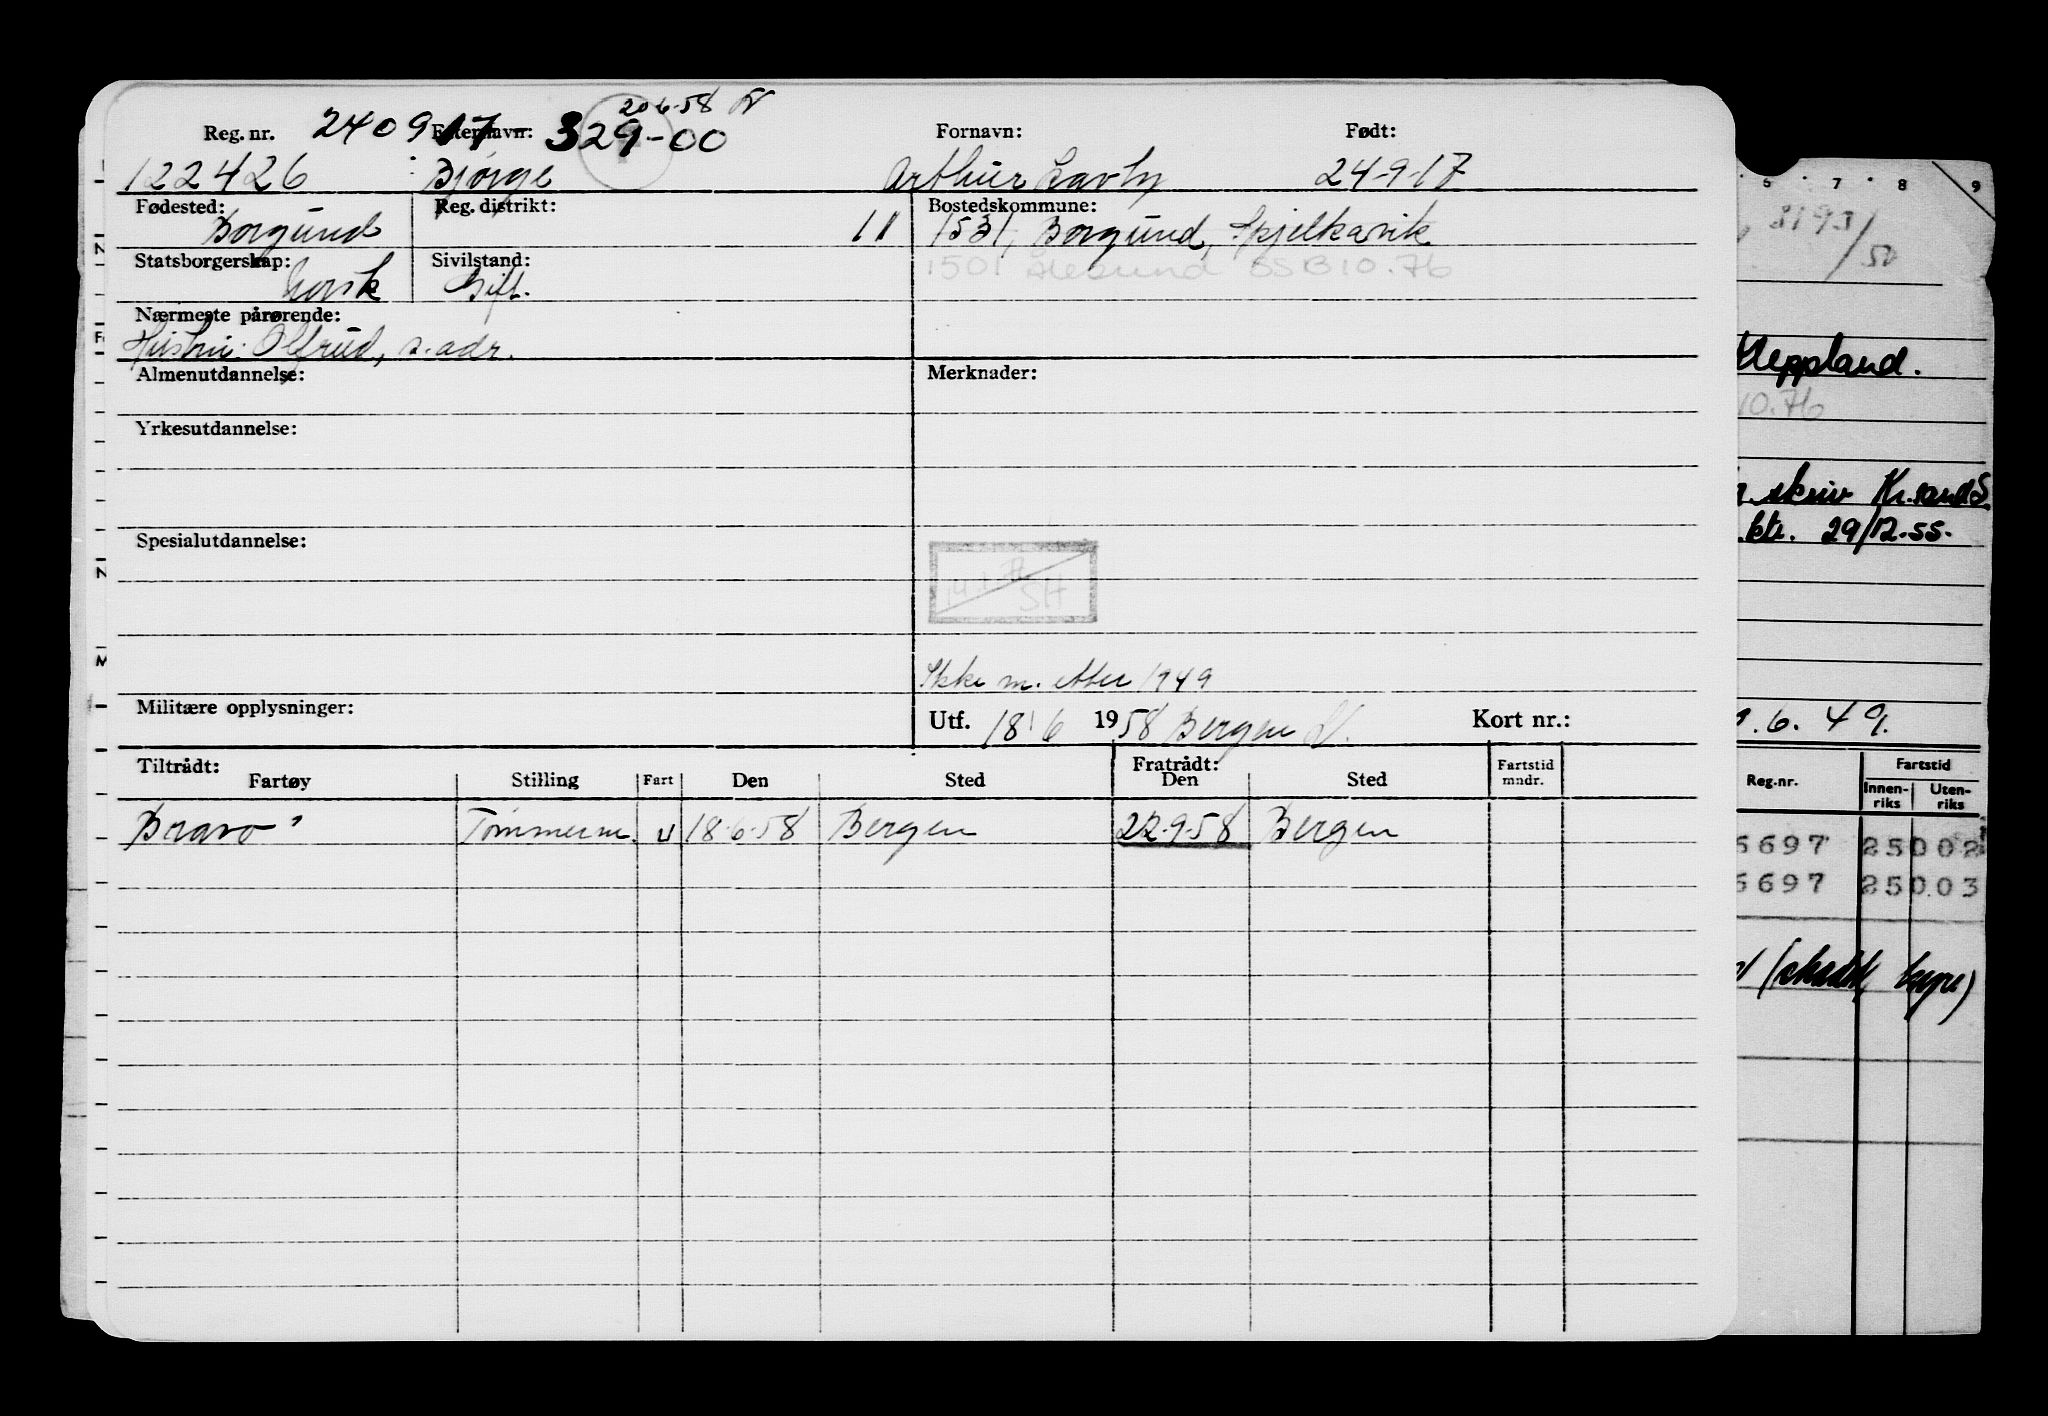 20.6.58
Reg. nr. 240917 Etternavn: 329-00 Fornavn: Født:
122426 Bjørge Arthur 24-9-17
Fødested: Reg. distrikt: Bostedskommune:
Borgund 11 1531, Borgund, Spjelkavik
Statsborgerskap: Sivilstand: 1501 Ålesund SSB 10.76
Norsk Gift.
Nærmeste pårørende:
Hustru: Olfrid, s. adr.
Almenutdannelse: Merknader:
Yrkesutdannelse:
Spesialutdannelse:
SH
Ikke m. etter 1949
Militære opplysninger: Utf. 18/6 1958 Bergen Kort nr.:
Tiltrådt: Fratrådt: Fartstid
Fartøy Stilling Fart Den Sted Den Sted mndr.
Bravo Tømmerm. U 18-6-58 Bergen 22-9-58 Bergen
5 · 7 · 8 9
8193/50
Heppland.
10.76
skriv Kr.sand S.
ktr. 29/12-55.
6. 49.
Reg.nr. Fartstid
Innen-riks Uten-riks
6697 25002
6697 250.03